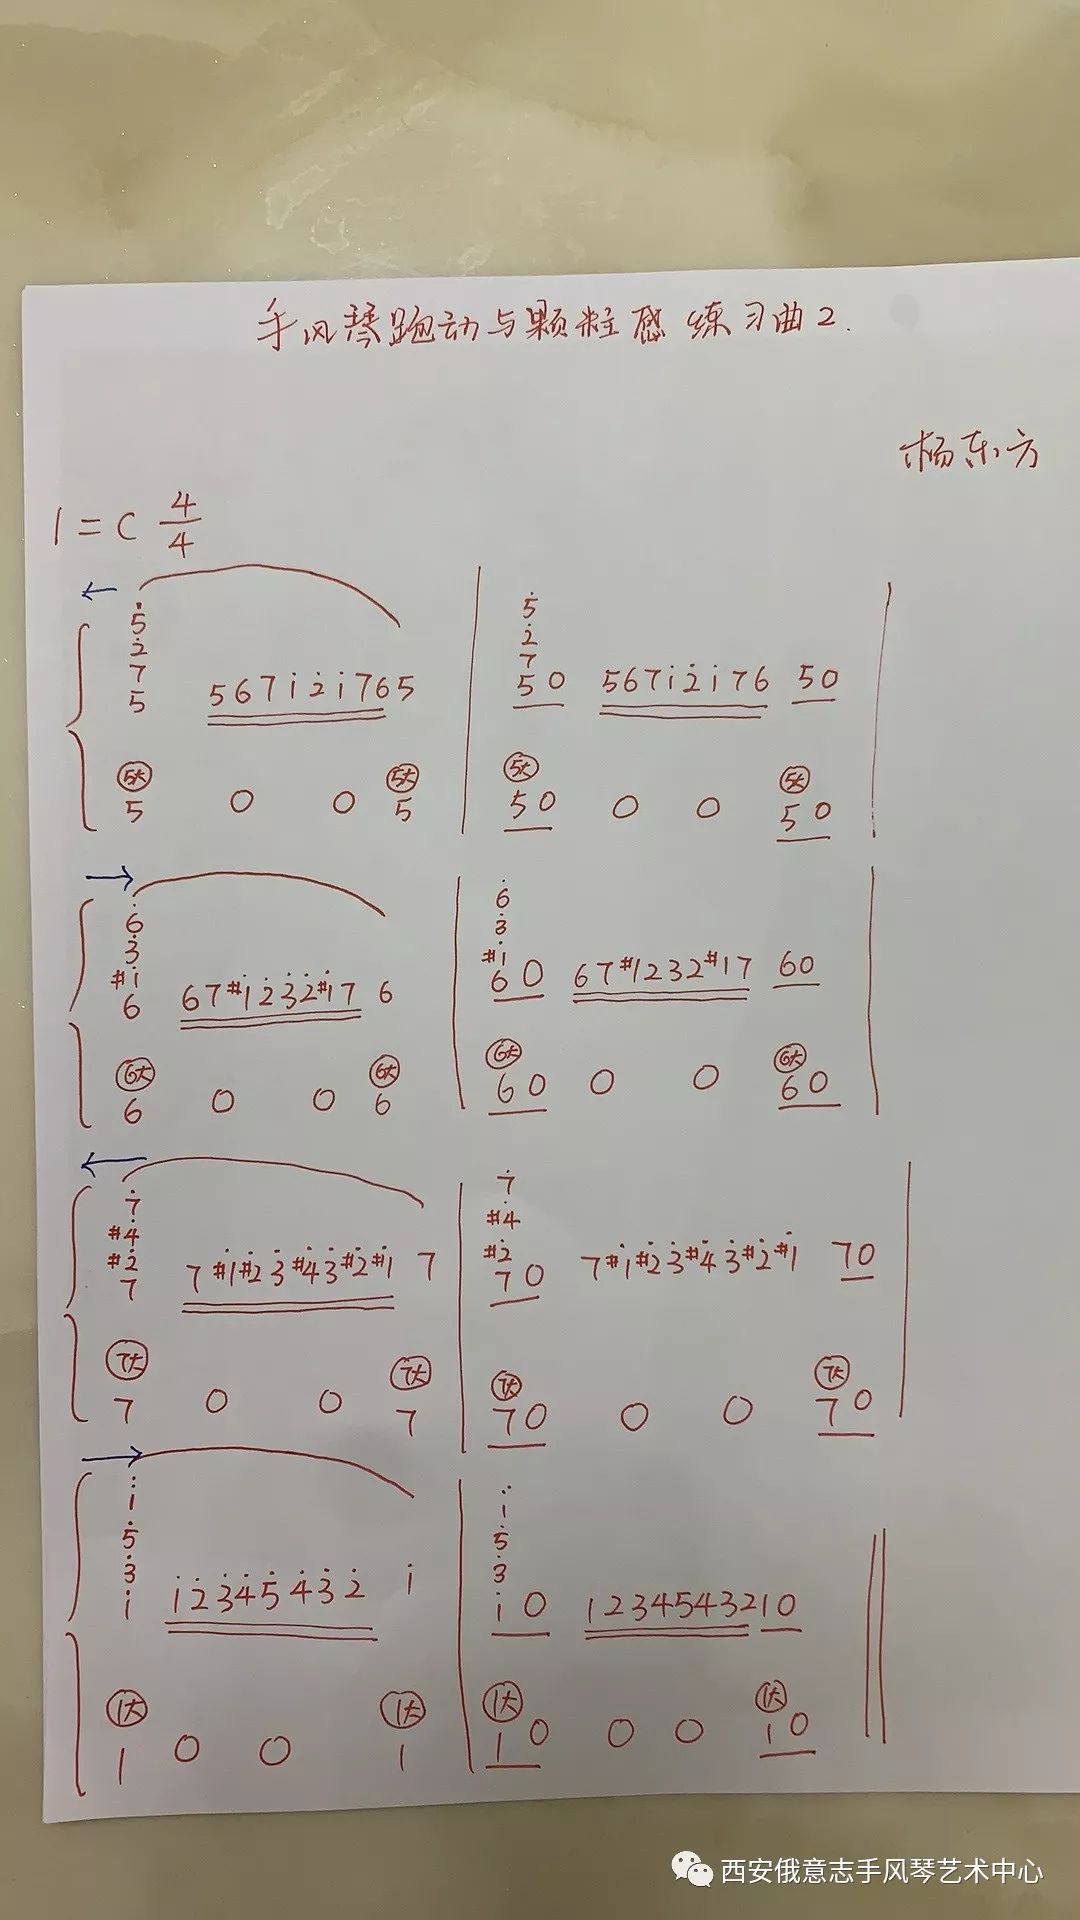 手风琴跑动与颗粒感 练习曲2.
杨东方
1=C 4/4
5̇
2̇
7
5 5 6 7 1̇ 2̇ 1̇ 7 6 5
5̇
2̇
7
5 0 5 6 7 1̇ 2̇ 1̇ 7 6 5 0
5大 5大 5大 5大
5 0 0 5 5 0 0 0 5 0
6̇
3̇
#1̇
6 6 7 #1̇ 2̇ 3̇ 2̇ #1̇ 7 6
6̇
3̇
#1̇
6 0 6 7 #1 2 3 2 #1 7 6 0
6大 6大 6大 6大
6 0 0 6 6 0 0 0 6 0
7̇
#4̇
#2̇
7 7 #1̇ #2̇ 3̇ #4̇ 3̇ #2̇ #1̇ 7
7̇
#4̇
#2̇
7 0 7 #1̇ #2̇ 3̇ #4̇ 3̇ #2̇ #1̇ 7 0
7大 7大 7大 7大
7 0 0 7 7 0 0 0 7 0
1̈
5̇
3̇
1̇ 1̇ 2̇ 3̇ 4̇ 5̇ 4̇ 3̇ 2̇ 1̇
1̈
5̇
3̇
1̇ 0 1 2 3 4 5 4 3 2 1 0
1大 1大 1大 1大
1 0 0 1 1 0 0 0 1 0
西安俄意志手风琴艺术中心